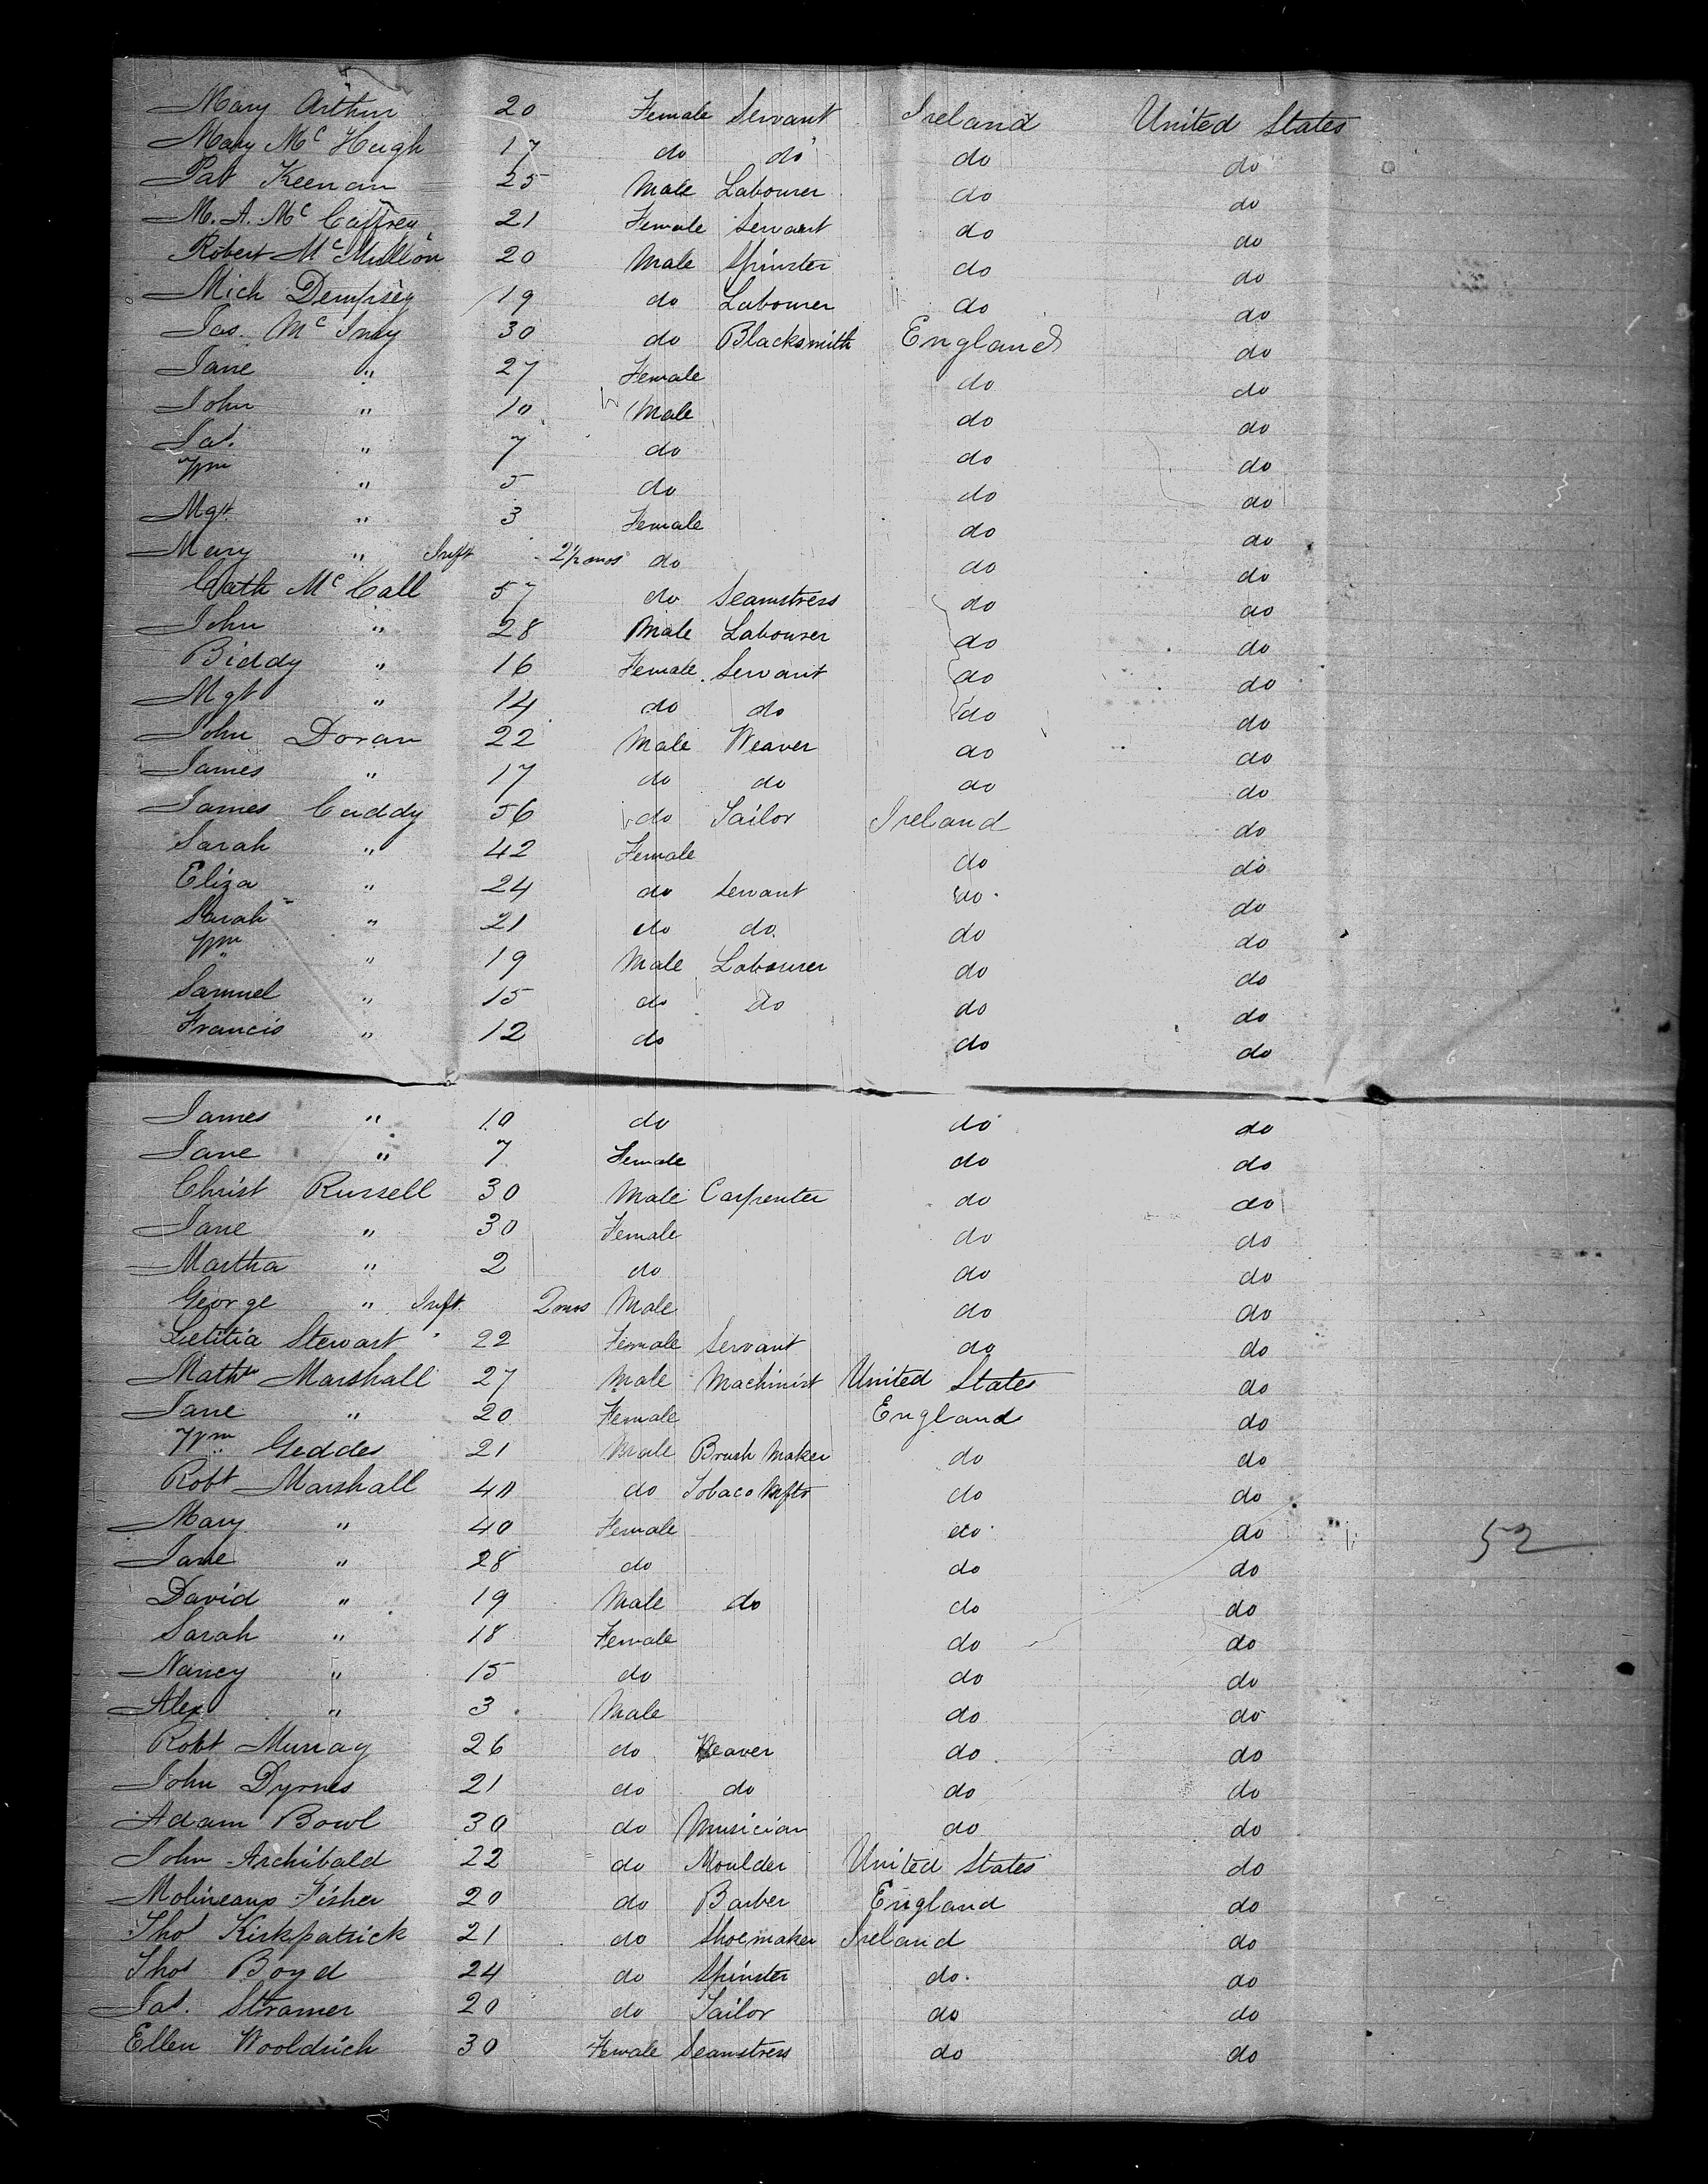 Mary Arthur 20 Female Servant Ireland United States
Mary Mc Hugh 17 do do do do
Pat Keenan 25 Male Labourer do do
M. A. Mc Caffrey 21 Female Servant do do
Robert Mc Mullon 20 Male Spinster do do
Mich Dempsey 19 do Labourer do do
Jas. Mc 30 do Blacksmith England do
Jane " 27 Female do do
John " 10 Male do do
Jas. " 7 do do do
Wm " 5 do do do
Mgt " 3 Female do do
Mary " Inft 2½ mos do do do
Cath Mc Call 57 do Seamstress do do
John " 28 Male Labourer do do
Biddy " 16 Female Servant do do
Mgt " 14 do do do do
John Doran 22 Male Weaver do do
James " 17 do do do do
James Cuddy 56 do Tailor Ireland do
Sarah " 42 Female do do
Eliza " 24 do Servant do do
Sarah " 21 do do do do
Wm " 19 Male Labourer do do
Samuel " 15 do do do do
Francis " 12 do do do
James " 10 do do do
Jane " 7 Female do do
Christ Russell 30 Male Carpenter do do
Jane " 30 Female do do
Martha " 2 do do do
George " Inft. 2 mos Male do do
Letitia Stewart 22 Female Servant do do
Mathw Marshall 27 Male Machinist United States do
Jane " 20 Female England do
Wm Geddes 21 Male Brush Maker do do
Robt Marshall 40 do Tobaco Mftr do do
Mary " 40 Female do do 52
Jane " 28 do do do
David " 19 Male do do do
Sarah " 18 Female do do
Nancy " 15 do do do
Alex " 3 Male do do
Robt Murray 26 do Weaver do do
John Dyrnes 21 do do do do
Adam Bowl 30 do Musician do do
John Archibald 22 do Moulder United States do
Molineaux Fisher 20 do Barber England do
Thos Kirkpatrick 21 do Shoemaker Ireland do
Thos Boyd 24 do Spinster do. do
Jas. Stramer 20 do Tailor do do
Ellen Wooldrich 30 Female Seamstress do do